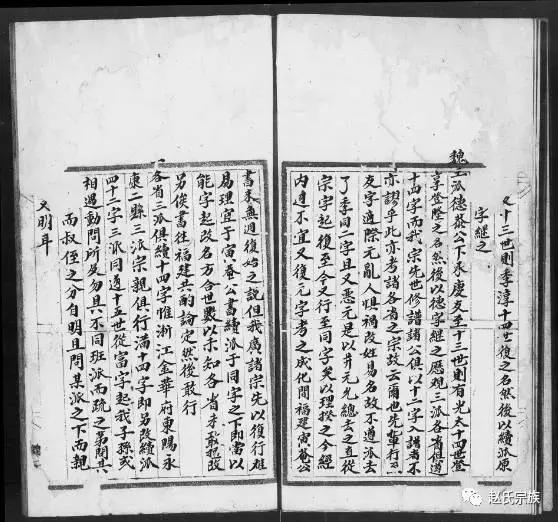 又十三世則季淳十四世復之名然後以續派原
字經之
魏王派德恭公下承慶友至十三世則有光太十四世登
享登陞之名然後以德字經之歷觀三派各省俱遵
十四字而我宗先世修譜諸公俱以十二字入譜者不
亦謬乎此亦考諸各省之宗故云爾也先輩行
友字適際元亂人懼禍改姓易名故不遵派去
了季同二字且又惡元是以并元允總去之直從
宗字起復至今又行至同字矣以理揆之今經
內不宜又復元字考之成化間福建寅菴公
書來無週復始之說但我廣諸宗先以復行雄
易理宜于寅菴公書續派于同字之下即當以
能字起改名方合世數以未知各省未敢擅改
另俟書往福建共酌論定然後敢行
各省三派俱續十四字惟浙江金華府東陽永
康二縣三派宗親俱行滿十四字即另改續派
四十二字三派同遇十五世從富字起我子孫或
相遇動問所及勿具不同班派而疏之第問其
而叔侄之分自明且問某派之下而親
又明耳
赵氏宗族